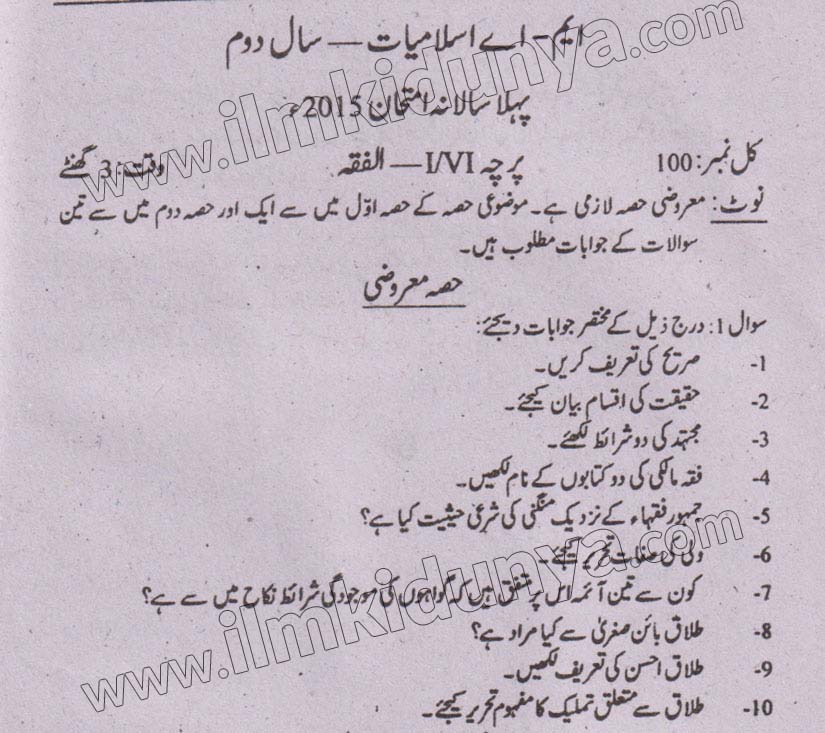 ایم۔ اے اسلامیات — سال دوم
پہلا سالانہ امتحان 2015ء
کل نمبر: 100 پرچہ I/VI — الفقہ وقت: 3 گھنٹے
نوٹ: معروضی حصہ لازمی ہے۔ موضوعی حصہ کے حصہ اوّل میں سے ایک اور حصہ دوم میں سے تین
سوالات کے جوابات مطلوب ہیں۔
حصہ معروضی
سوال 1: درج ذیل کے مختصر جوابات دیجئے:
1- صریح کی تعریف کریں۔
2- حقیقت کی اقسام بیان کیجئے۔
3- مجتہد کی دو شرائط لکھئے۔
4- فقہ مالکی کی دو کتابوں کے نام لکھیں۔
5- جمہور فقہاء کے نزدیک منگنی کی شرعی حیثیت کیا ہے؟
6- ولی کی صفات تحریر کیجئے۔
7- کون سے تین آئمہ اس پر متفق ہیں کہ گواہوں کی موجودگی شرائط نکاح میں سے ہے؟
8- طلاق بائن صغریٰ سے کیا مراد ہے؟
9- طلاق احسن کی تعریف لکھیں۔
10- طلاق سے متعلق تملیک کا مفہوم تحریر کیجئے۔
www.ilmkidunya.com
www.ilmkidunya.com